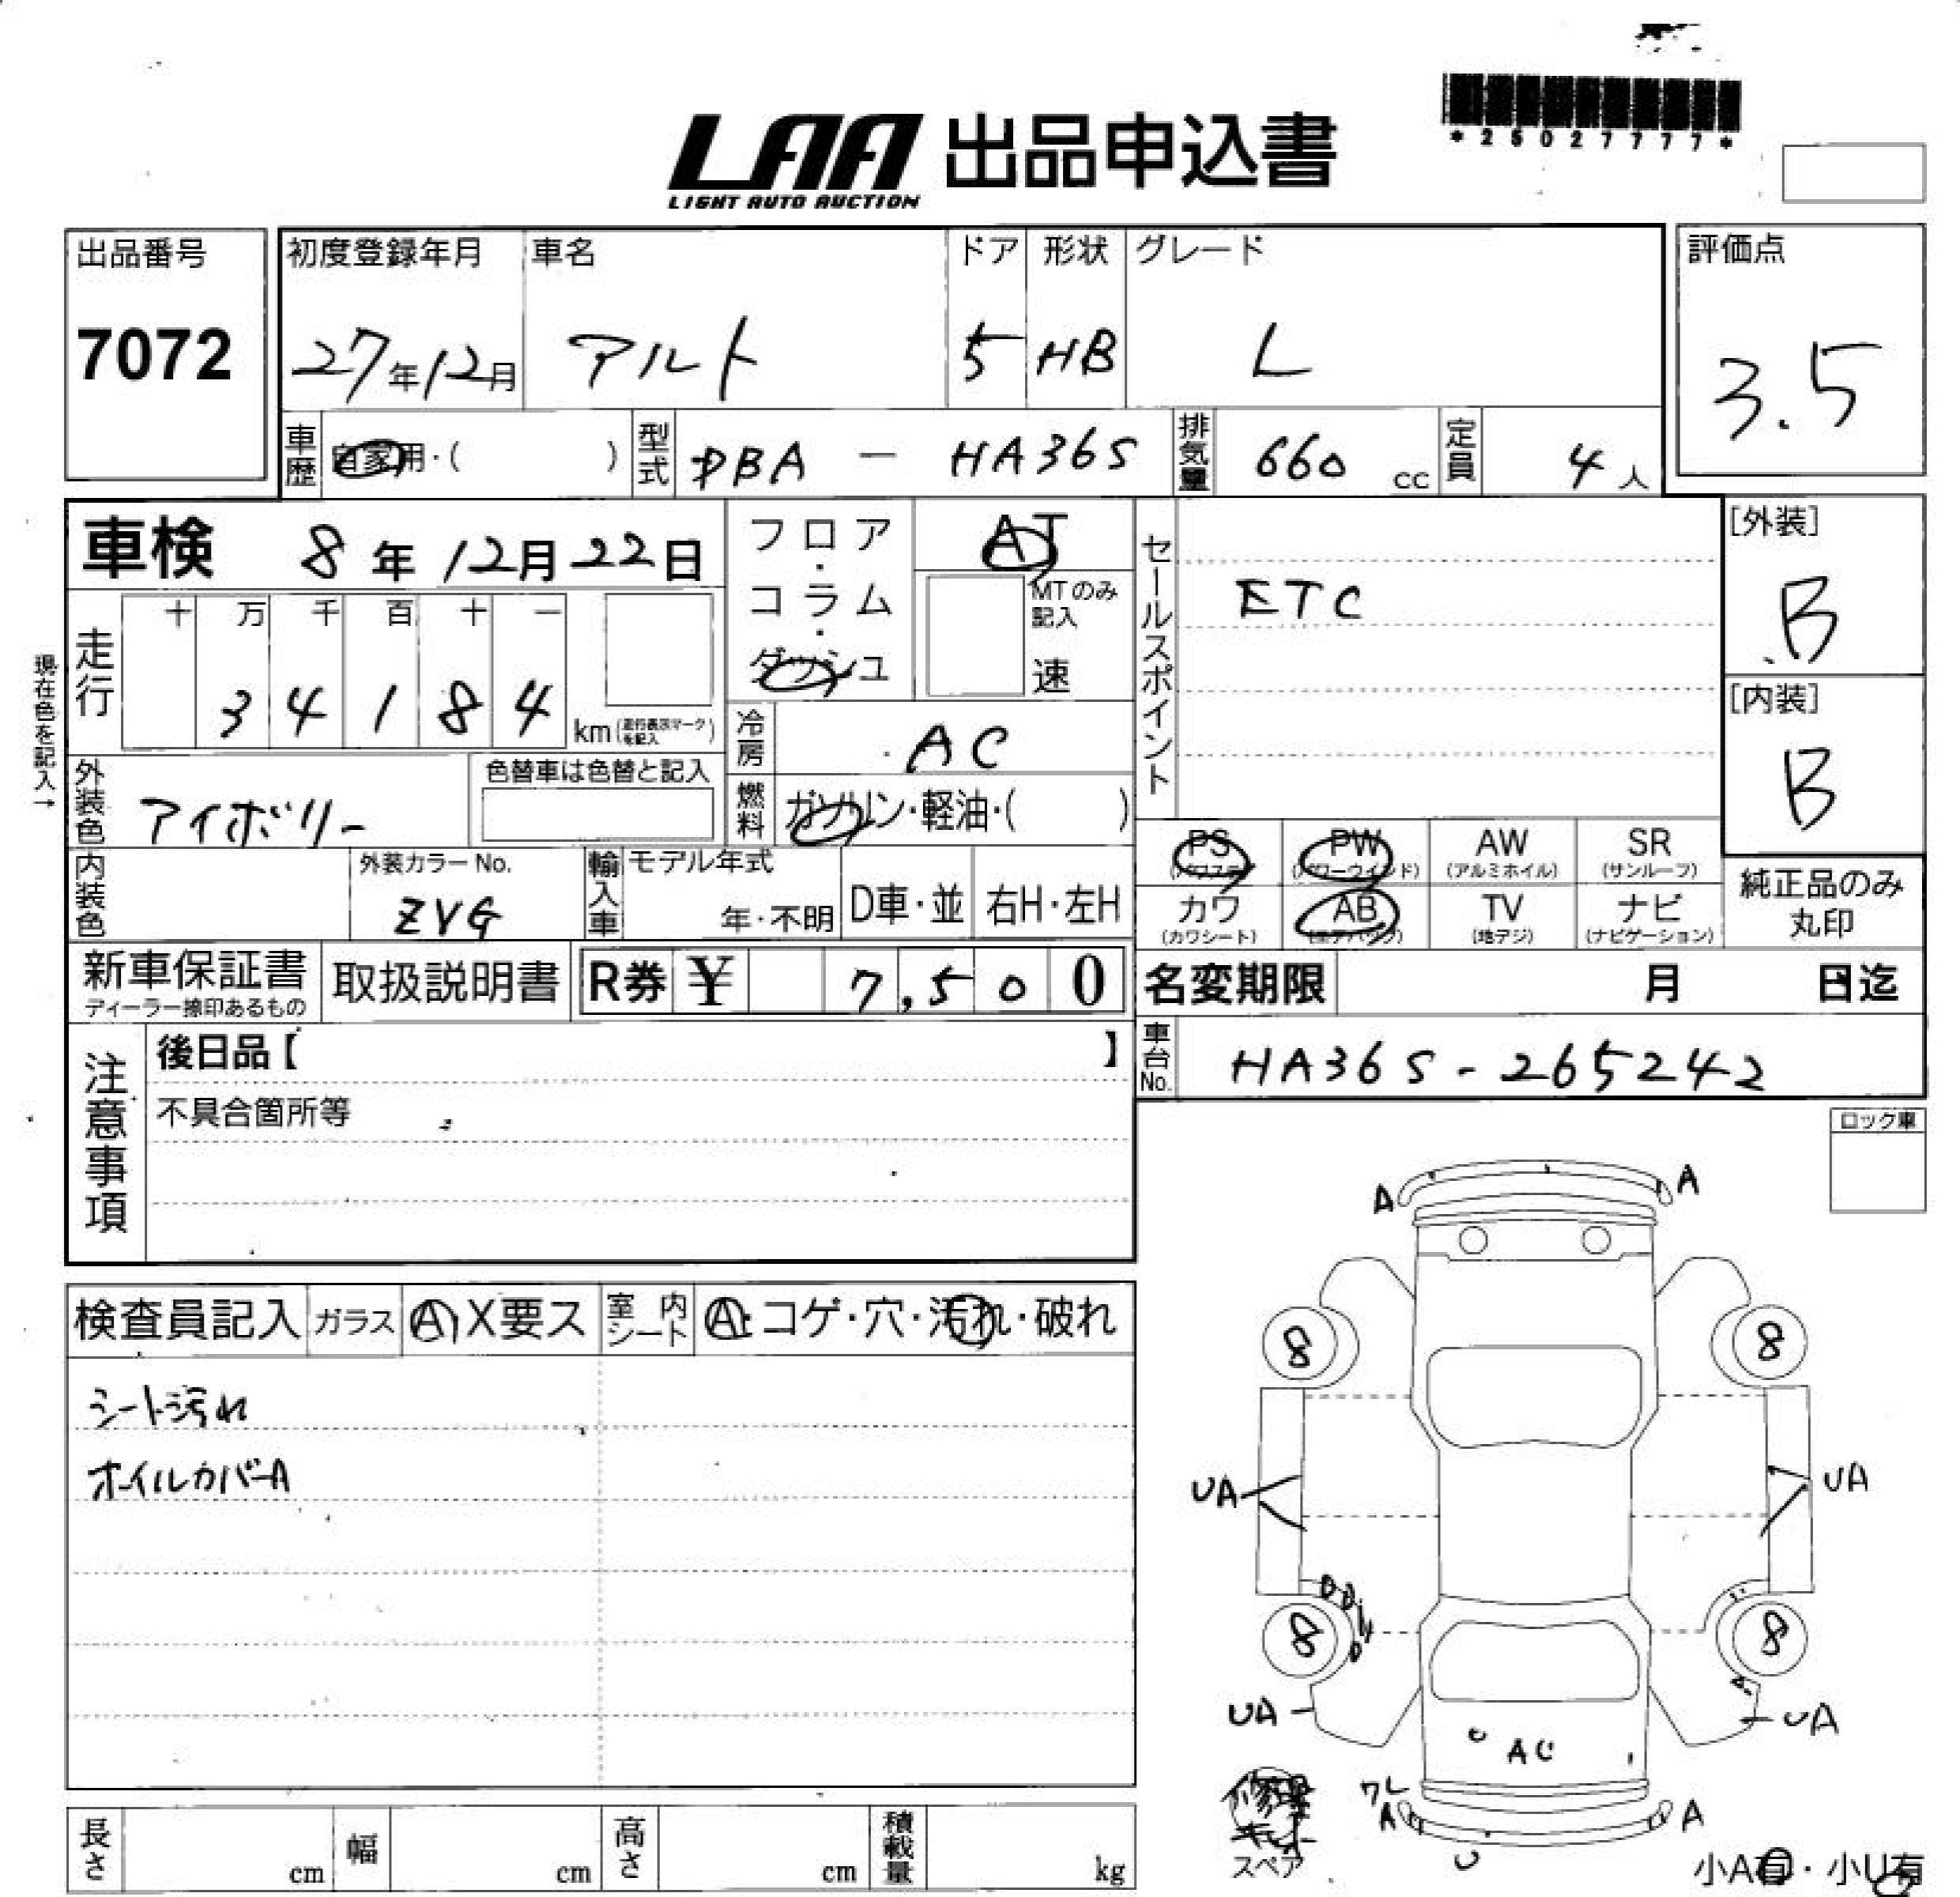 *25027777*
LAA 出品申込書
LIGHT AUTO AUCTION
出品番号 初度登録年月 車名 ドア 形状 グレード 評価点
7072 27年12月 アルト 5 HB L 3.5
車歴 自家用・( ) 型式 DBA - HA36S 排気量 660 cc 定員 4 人
車検 8年12月22日 フロア・コラム・ダッシュ AT セールスポイント [外装]
MTのみ記入 速 ETC B
現在色を記入→
走行 十 万 千 百 十 一
3 4 1 8 4 km (走行表示マークを記入) [内装]
冷房 AC B
外装色 アイボリー 色替車は色替と記入 燃料 ガソリン・軽油・( )
PS (パワステ) PW (パワーウインド) AW (アルミホイル) SR (サンルーフ)
内装色 外装カラーNo. ZVG 輸入車 モデル年式 年・不明 D車・並 右H・左H
カワ (カワシート) AB (エアバッグ) TV (地デジ) ナビ (ナビゲーション) 純正品のみ丸印
新車保証書 取扱説明書 R券 ¥ 7,500 名変期限 月 日迄
ディーラー捺印あるもの
注意事項 後日品【 】 車台No. HA36S-265242
不具合箇所等
ロック車
A A
検査員記入 ガラス A X要ス 室内シート A・コゲ・穴・汚れ・破れ
8 8
シート汚れ
オイルカバーA
UA UA
8 8
UA UA
AU
ワレ
A A
修理キット
スペア
U
長さ cm 幅 cm 高さ cm 積載量 kg
小A有・小U有